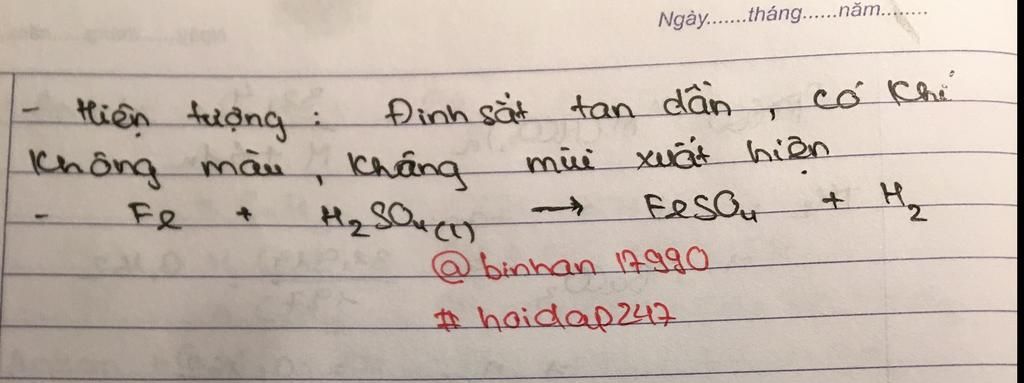 Ngày.......tháng......năm........
- Hiện tượng : Đinh sắt tan dần , có khí
không màu , không mùi xuất hiện
- Fe + H₂SO₄(l) → FeSO₄ + H₂
@binhan 17990
# hoidap247